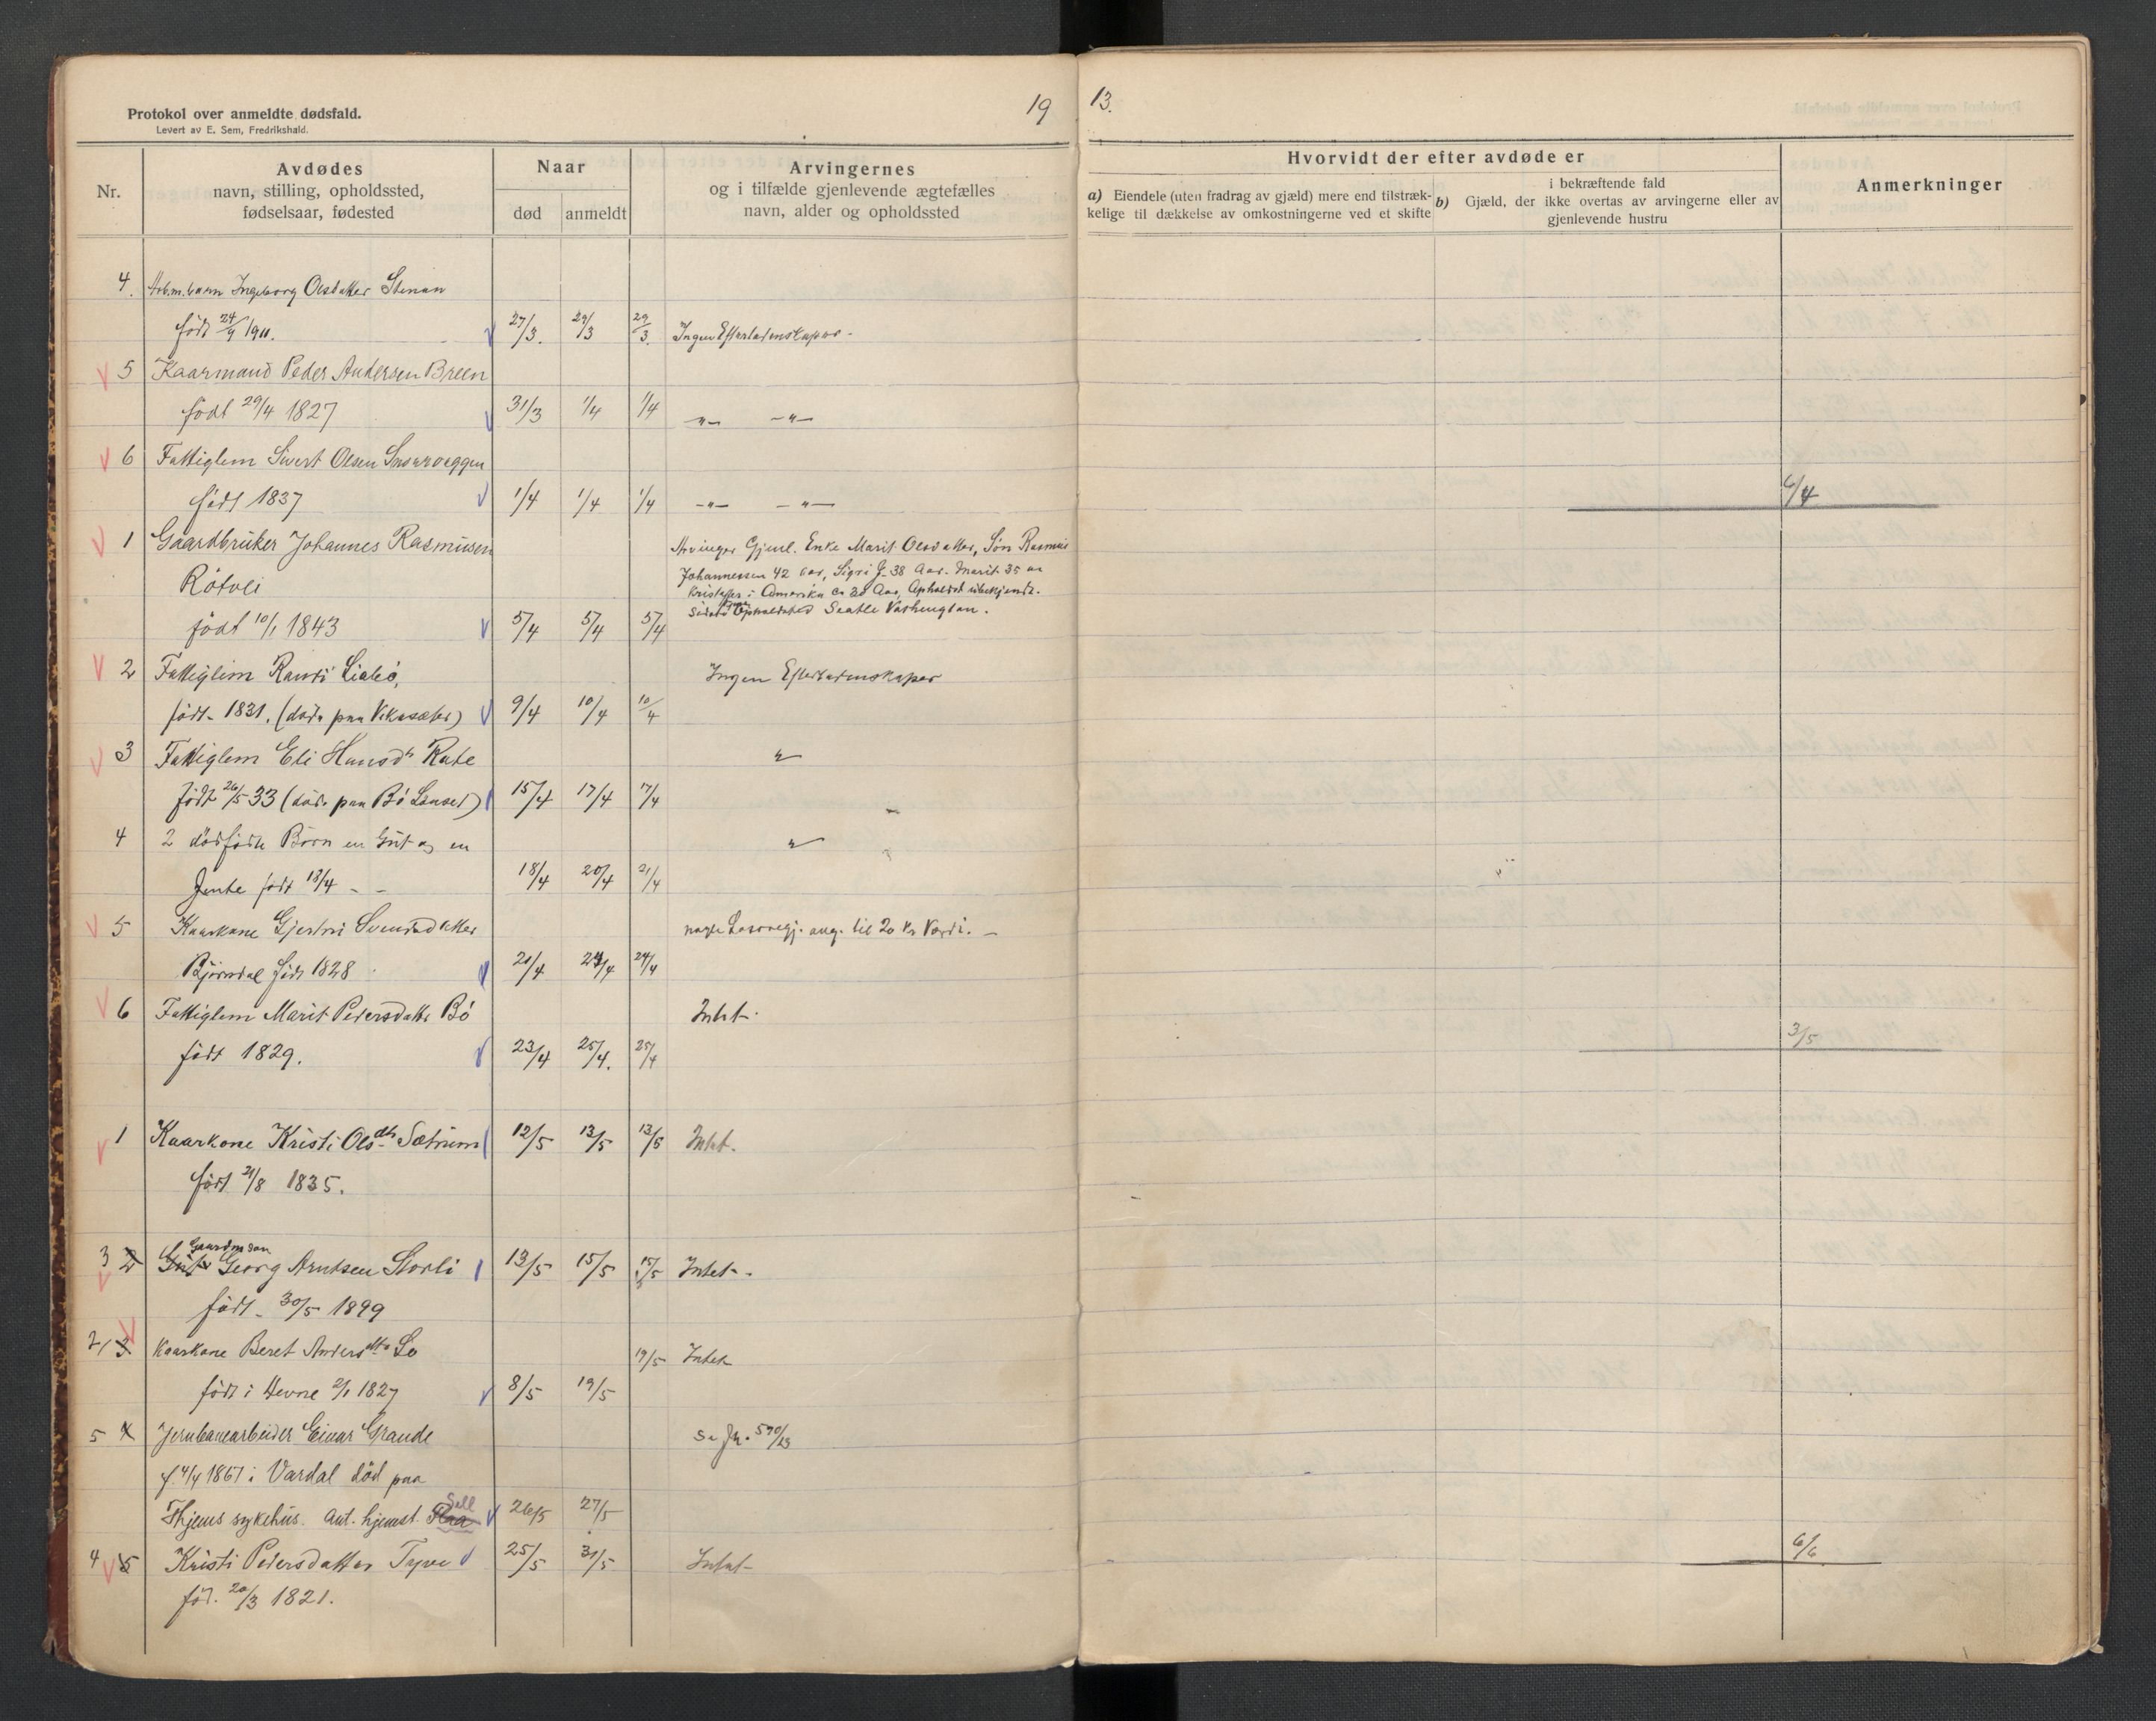 Protokol over anmeldte dødsfald.
Levert av E. Sem, Fredrikshald.
19 13.
Nr.
Avdødes
navn, stilling, opholdssted,
fødselsaar, fødested
Naar
død anmeldt
Arvingernes
og i tilfælde gjenlevende ægtefælles
navn, alder og opholdssted
Hvorvidt der efter avdøde er
a) Eiendele (uten fradrag av gjæld) mere end tilstræk-
kelige til dækkelse av omkostningerne ved et skifte
i bekræftende fald
b) Gjæld, der ikke overtas av arvingerne eller av
gjenlevende hustru
Anmerkninger
4. Arb.m. barn Ingeborg Olsdatter Stenan
født 24/9 1911. 27/3. 29/3 29/3. Ingen Efterladenskaper -
5 Kaarmand Peder Andersen Breen
født 29/4 1827 31/3 1/4 1/4 -"- -"-
6 Fattiglem Sivert Olsen
født 1837 1/4 1/4 1/4 -"- -"- 6/4
1 Gaardbruker Johannes Rasmusen
Røtvei
født 10/1 1843 5/4 5/4 5/4
Arvinger Gjenl. Enke Marit Olsdatter, Søn Rasmus
Johannessen 42 aar, Sigri J. 38 Aar. Marit 35 aa
Kristoffer i Amerika ca 30 Aar, Opholdsted ubekjendt.
Sidste Opholdsted Seatle Vashington.
2 Fattiglem Randi Liabø,
født 1831. (døde paa Vikasæter) 9/4 10/4 10/4 Ingen Efterladenskaper
3 Fattiglem Eli Hansdr Kate
født 26/5 33 (døde paa Bø Lønset) 15/4 17/4 17/4 "
4 2 dødfødte Børn en Gut og en
Jente født 18/4 - - 18/4 20/4 21/4 "
5 Kaarkone Gjertru Svendsdatter
Bjørndal født 1828 21/4 24/4 24/4 nogle Løsøregj. ang. til 20 Kr Værdi. -
6 Fattiglem Marit Pedersdatter Bø
født 1829. 23/4 25/4. 25/4 Intet. 3/5
1 Kaarkone Kristi Olsdtr Sætrum 12/5 13/5 13/5 Intet.
født 21/8 1835.
3 2 Gaardmdsøn
Gut Georg Arntsen Storli 13/5 15/5 15/5 Intet -.
født - 30/5 1899
2/ 3. Kaarkone Beret Andersdtr Lo
født i Hevne 2/1 1827 8/5 19/5 19/5 Intet
5 4 Jernbanearbeider Einar Grande
f. 4/4 1861 i Vardal død paa
Thjems sykehus. Ant. hjemst. Flaa Sell 26/5 27/5 Se Jr. 590/13
4 5 Kristi Pedersdatter Tyve 25/5 31/5 Intet - 6/6
fød. 20/3 1821.